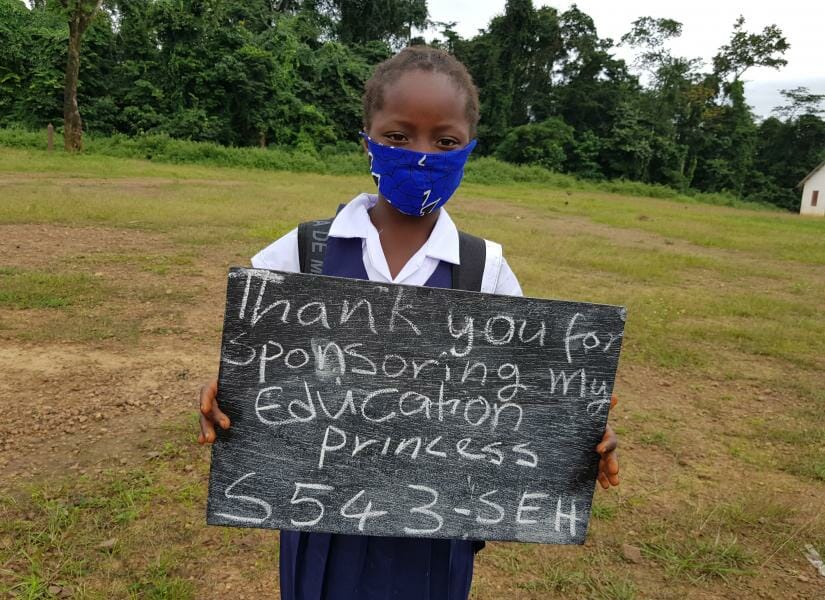 Thank you for
Sponsoring my
Education
princess
S543-SEH